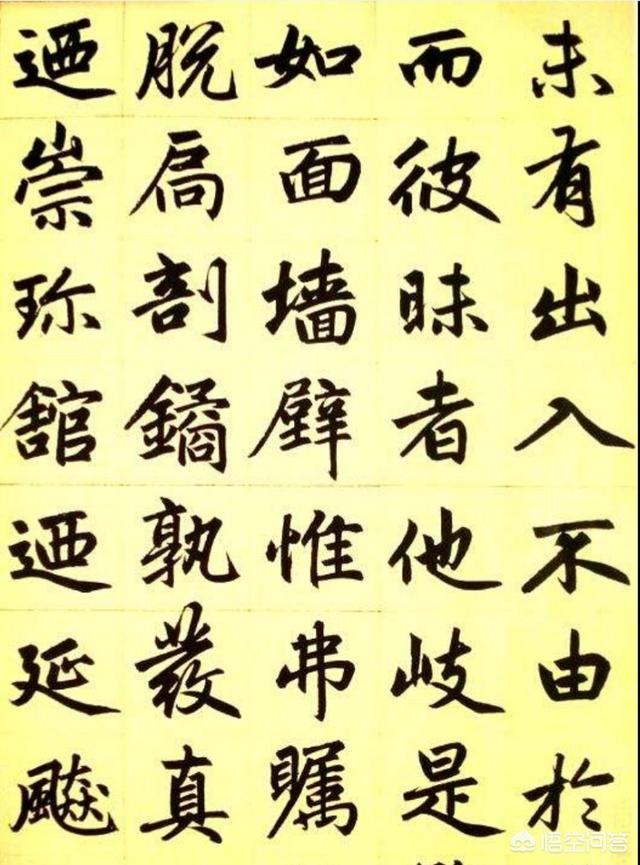 未有出入不由於
而彼昧者他岐是
如面墙壁惟弗矚
脱扃剖鐍孰發真
迺崇珎館迺延飈
悟空问答